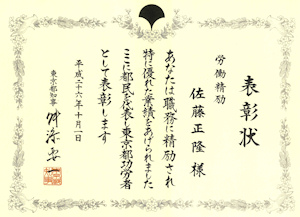 表彰状
労働精励
佐藤正隆 様
あなたは職務に精励され
特に優れた業績をあげられました
ここに都民を代表し東京都功労者
として表彰します
平成二十六年十月一日
東京都知事 舛添要一